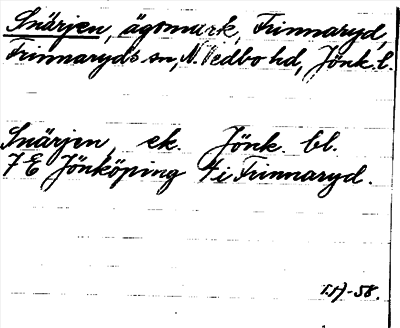 Snärjen, ägomark, Frinnaryd,
Frinnaryds sn, N. Vedbo hd, Jönk. l.
Snärjen, ek. Jönk. bl.
7 E Jönköping 4 i Frinnaryd.
-58.